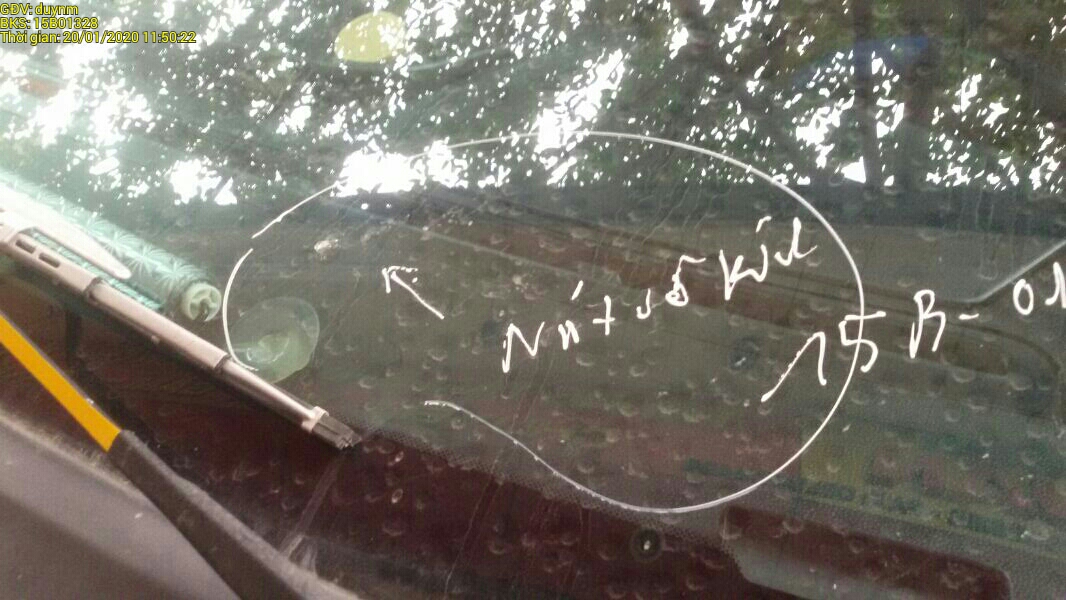 GDV: duynm
BKS: 15B01328
Thời gian: 20/01/2020 11:50:22
Nứt vỡ kính
15B-01